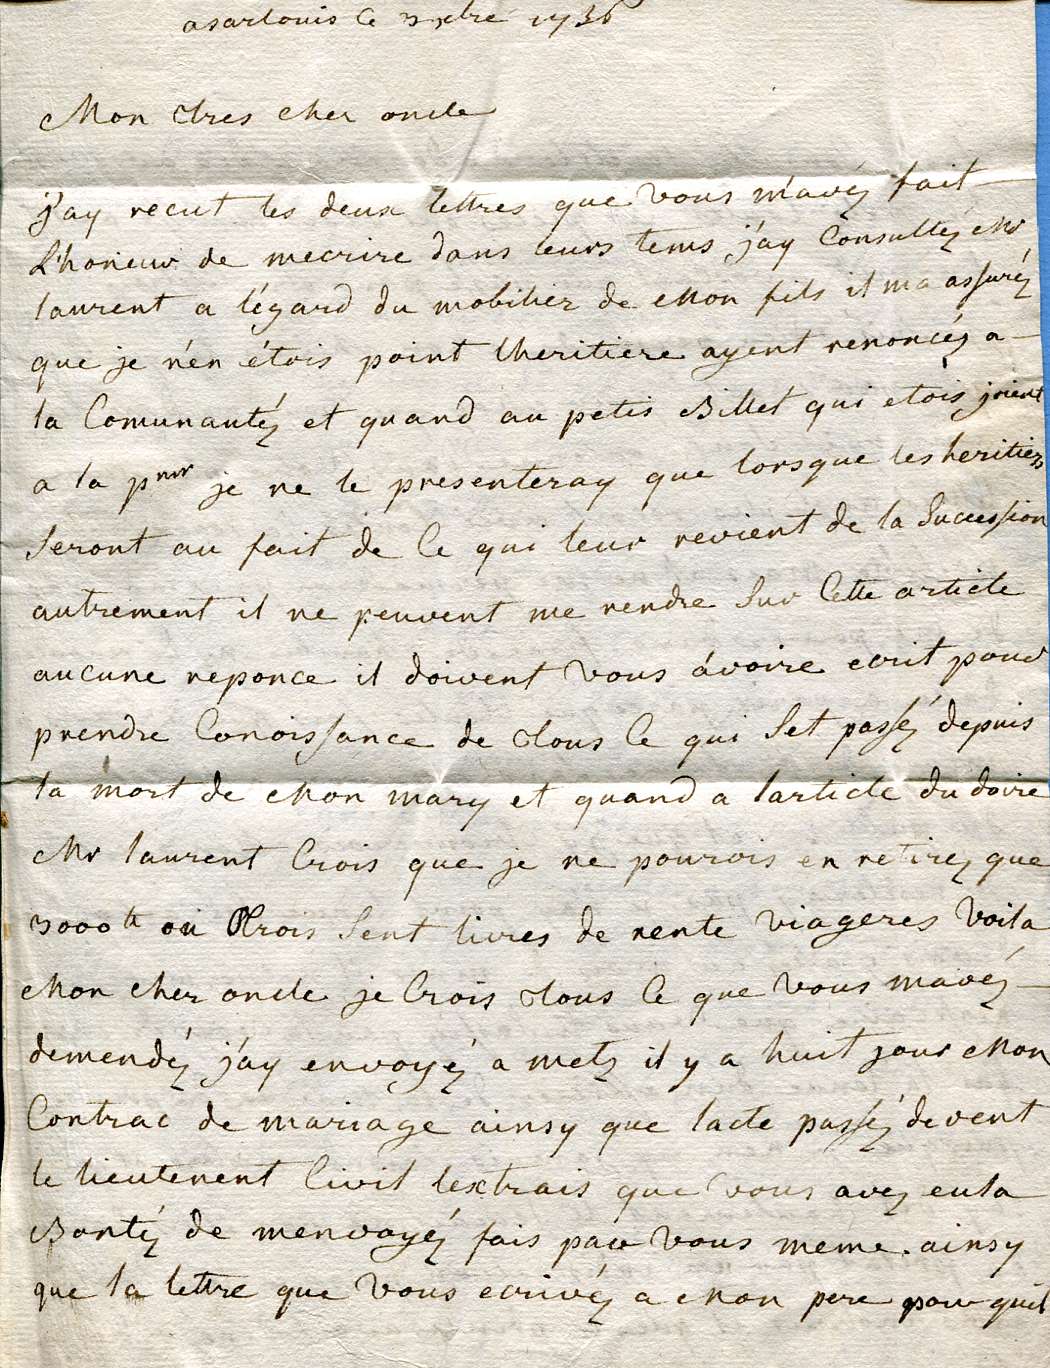 a sarlouis ce 3 xbre 1736
Mon tres cher oncle
j'ay recut les deux lettres que vous m'avéz fait
L'honeur de mecrire dans leurs tems j'ay Consultéz Mr
laurent a légard du mobilier de Mon fils il ma assuréz
que je n'en étois point lheritiere ayent renoncéz a
la Comunautéz et quand au petis Billet qui etois joient
a la pnr je ne le presenteray que lorsque les heritiers
seront au fait de Ce qui leur revient de la Succession
autrement il ne peuvent me rendre Sur Cette article
aucune reponce il doivent vous avoire ecrit pour
prendre Conoissance de tous Ce qui Set passéz depuis
la mort de Mon mary et quand a larticle du doire
Mr laurent Crois que je ne pourois en retirez que
3000 tt ou trois Sent livres de rente viageres voila
Mon cher oncle je Crois tous Ce que vous mavéz
demendéz j'ay envoyéz a metz il y a huit jour Mon
Contrac de mariage ainsy que lacte passéz devent
le lieutenent Civil lextrais que vous avez eu la
Bontéz de menvoyéz fais par vous meme. ainsy
que la lettre que vous ecrivéz a Mon pere pour quil